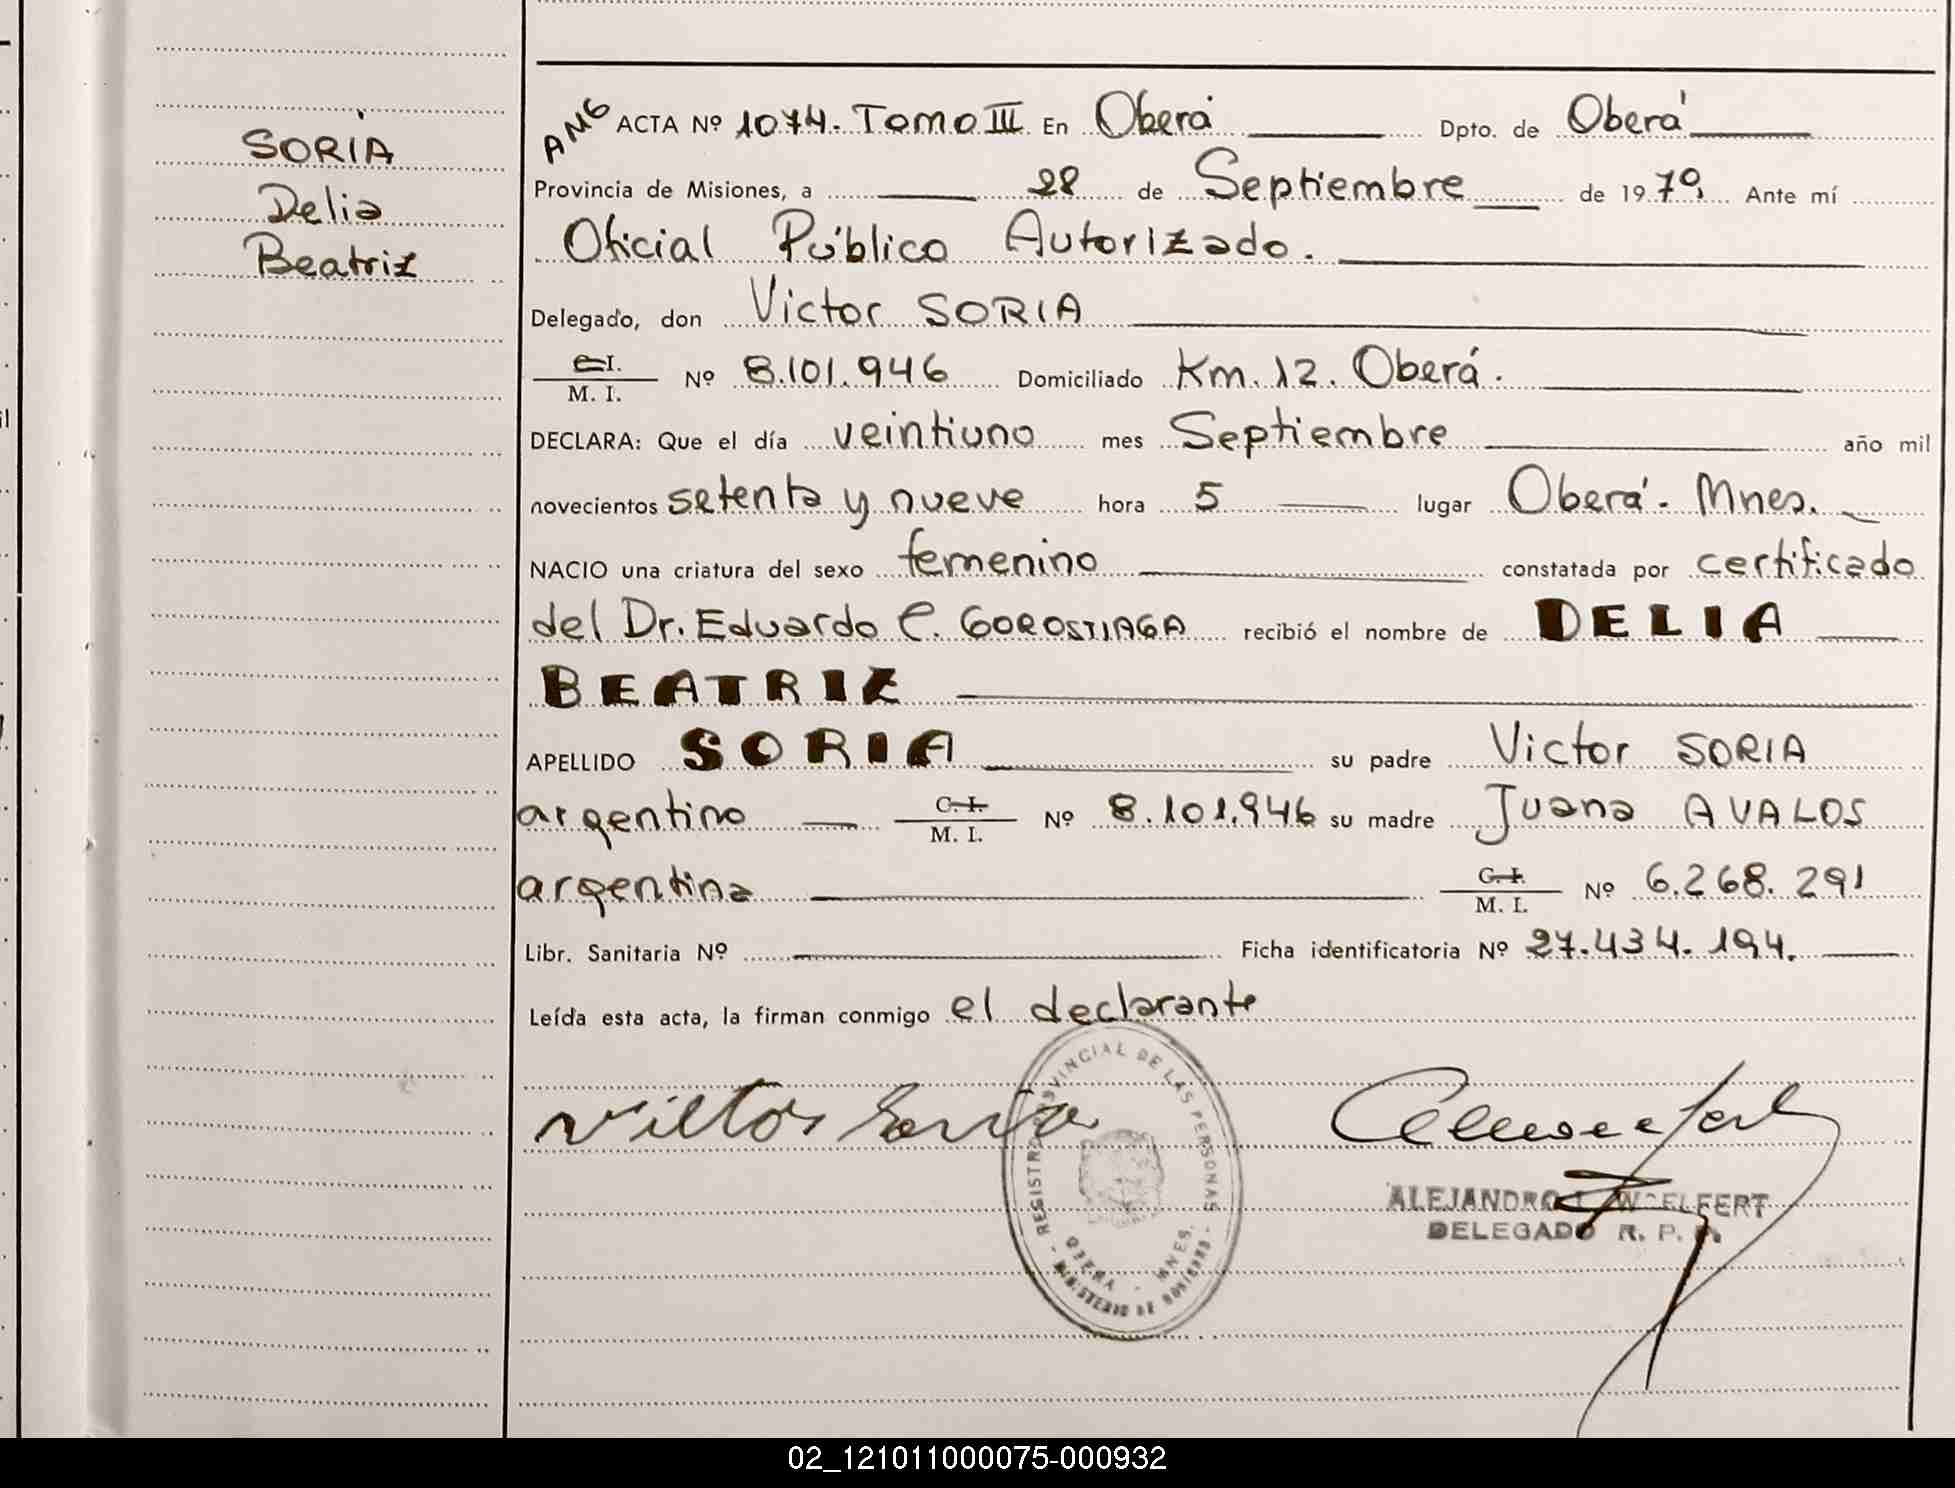 SORIA
Delia
Beatriz
AMG ACTA Nº 1074. Tomo III En Oberá Dpto. de Oberá
Provincia de Misiones, a 28 de Septiembre de 1979, Ante mí
Oficial Público Autorizado.
Delegado, don Victor SORIA
C.I. / M. I. Nº 8.101.946 Domiciliado Km. 12. Oberá.
DECLARA: Que el día veintiuno mes Septiembre año mil
novecientos setenta y nueve hora 5 lugar Oberá. Mnes.
NACIO una criatura del sexo femenino constatada por certificado
del Dr. Eduardo C. GOROSTIAGA recibió el nombre de DELIA
BEATRIZ
APELLIDO SORIA su padre Victor SORIA
argentino C. I. / M. I. Nº 8.101.946 su madre Juana AVALOS
argentina C. I. / M. I. Nº 6.268.291
Libr. Sanitaria Nº Ficha identificatoria Nº 27.434.194.
Leída esta acta, la firman conmigo el declarante
Victor Soria
REGISTRO PROVINCIAL DE LAS PERSONAS
OBERA - MNES.
MINISTERIO DE GOBIERNO
ALEJANDRO WOELFERT
DELEGADO R. P. P.
02_121011000075-000932